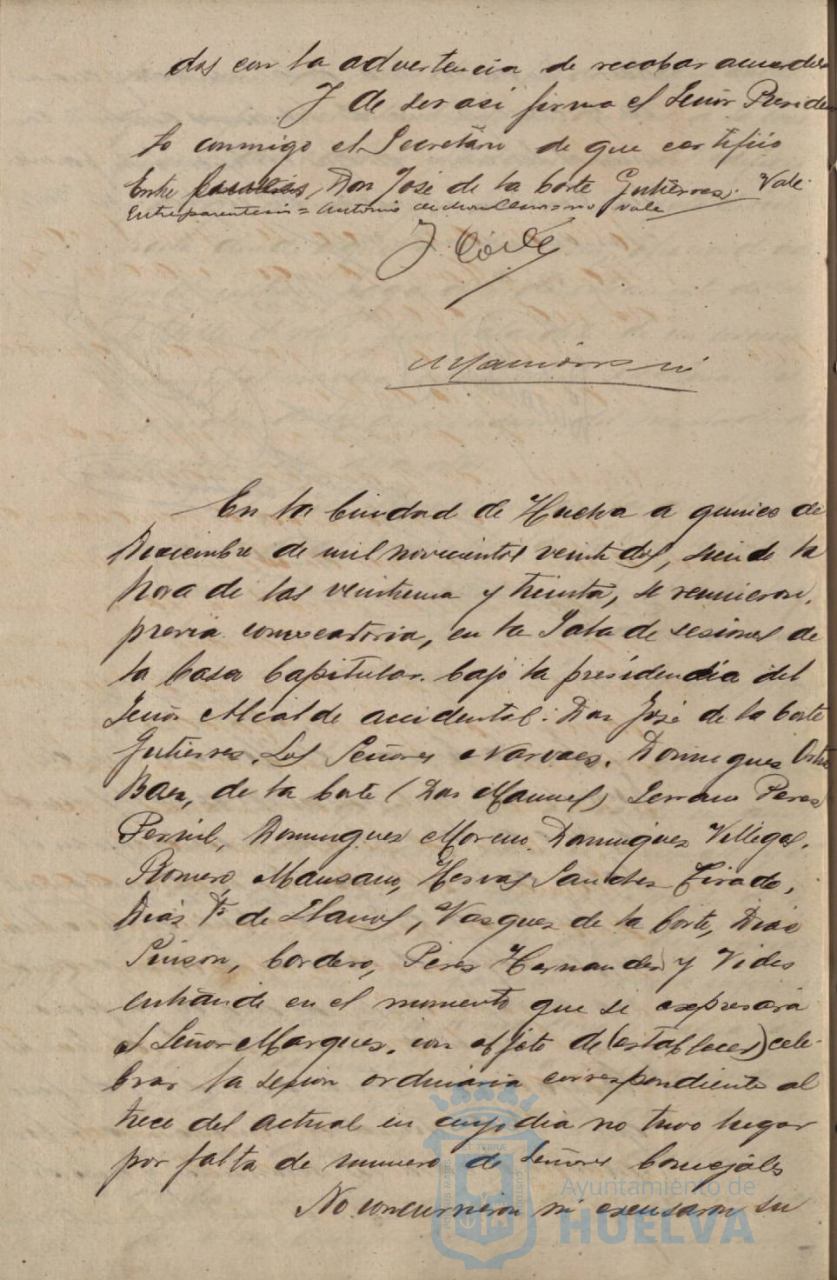 dos con la advertencia de recabar acuerdo
Y de ser así firma el Señor Presiden
te conmigo el Secretario de que certifico
Entre Don José de la Corte Gutierres. Vale.
Entreparentesis = Antonio de = no vale
J Corte
En la Ciudad de Huelva a quince de
Diciembre de mil novecientos veinte dos, siendo la
hora de las veintiuna y treinta, se reunieron,
previa convocatoria, en la Sala de sesiones de
la Casa Capitular bajo la presidencia del
Señor Alcalde accidental: Don José de la Corte
Gutierres, Los Señores Narvaes, Domingues
Baez, de la Corte (Don Manuel) Serrano Peres
Domingues Moreno, Domingues Villegas,
Romero, Manzano, Hervas Sanches Tirado,
Dias Fr de Llanos, Vasques de la Corte, Dias
Pinson, Cordero, Peres Hernandes y Vides
entrando en el momento que se expresará
el Señor Marques, con objeto de (establecer) cele-
brar la sesion ordinaria correspondiente al
trece del actual en cuyo dia no tuvo lugar
por falta de numero de Señores Concejales
No concurrieron ni excusaron su
Ayuntamiento de
HUELVA